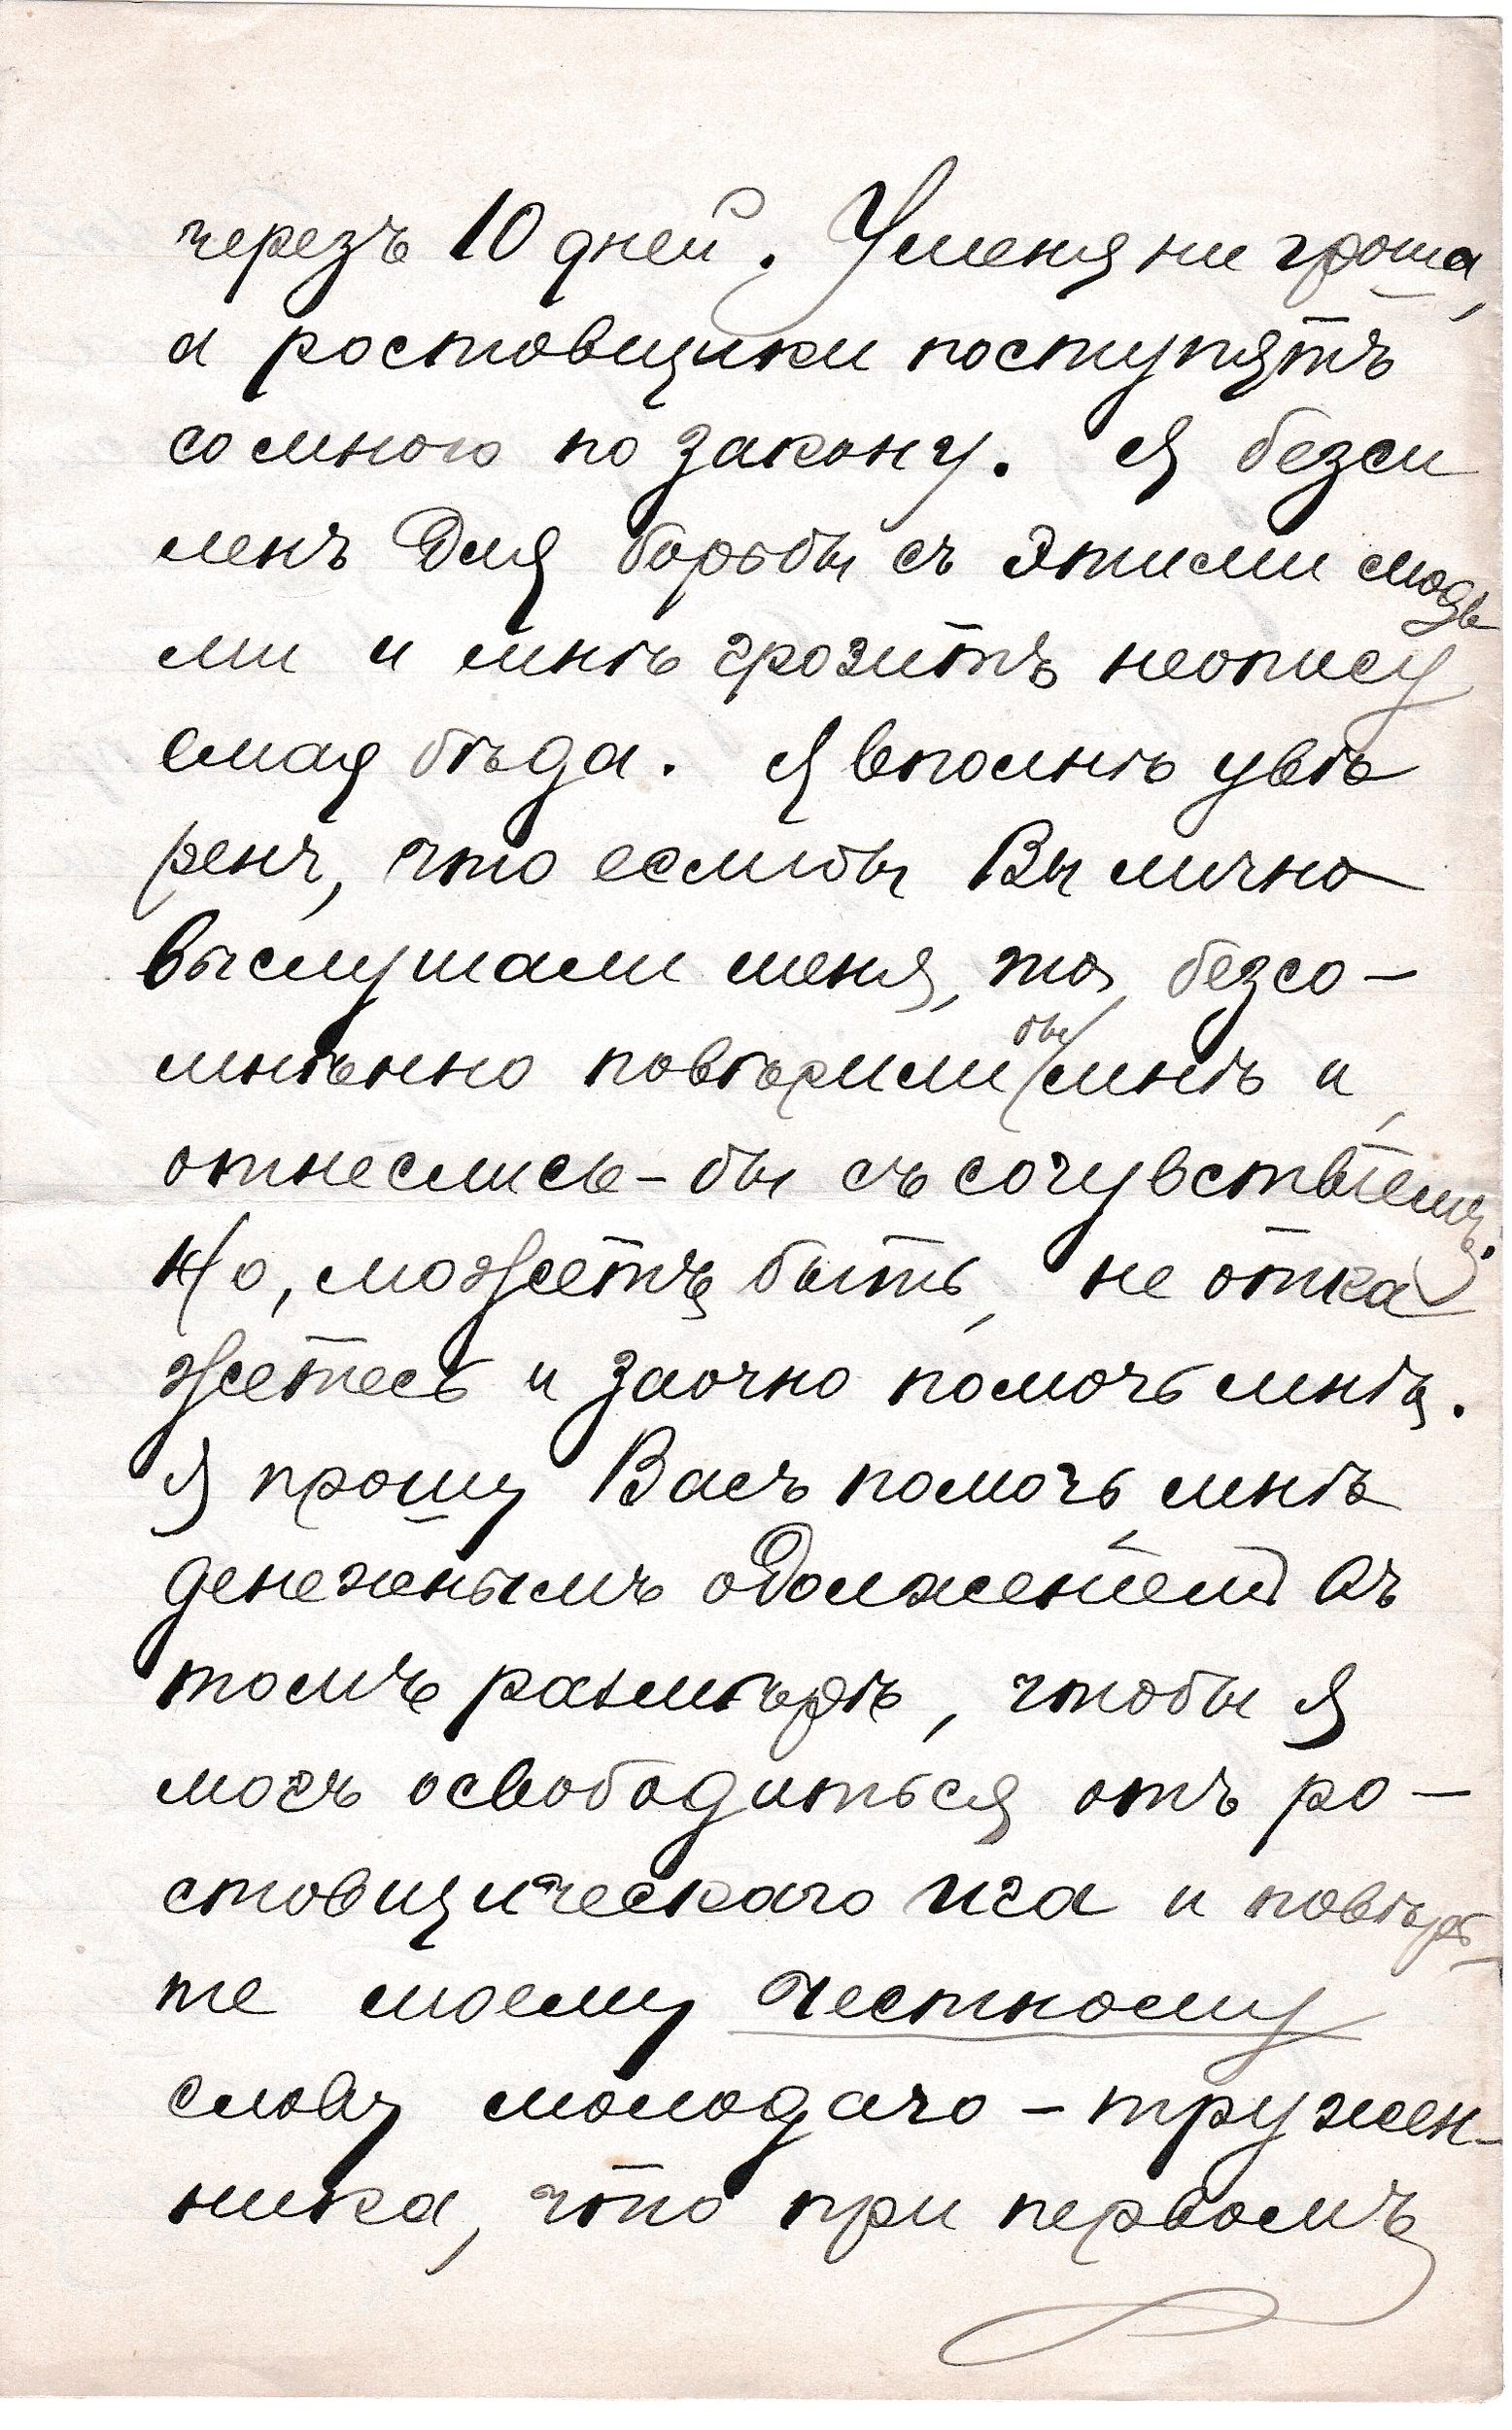 черезъ 10 дней. У меня ни гроша,
а ростовщики поступятъ
со мною по закону. Я безси
ленъ для борьбы съ этими людь
ми и мнѣ грозитъ неопису
емая бѣда. Я вполнѣ увѣ
ренъ, что еслибы Вы лично
выслушали меня, то, безсо-
мнѣнно повѣрили бы мнѣ и
отнеслись-бы съ сочувствіемъ.
Но, можетъ быть, не отка
жетесь и заочно помочь мнѣ.
Я прошу Васъ помочь мнѣ
денежнымъ одолженіемъ въ
томъ размѣрѣ, чтобы я
могъ освободиться отъ ро-
стовщическаго ига и повѣрь-
те моему честному
слову молодаго-тружен-
ника, что при первомъ